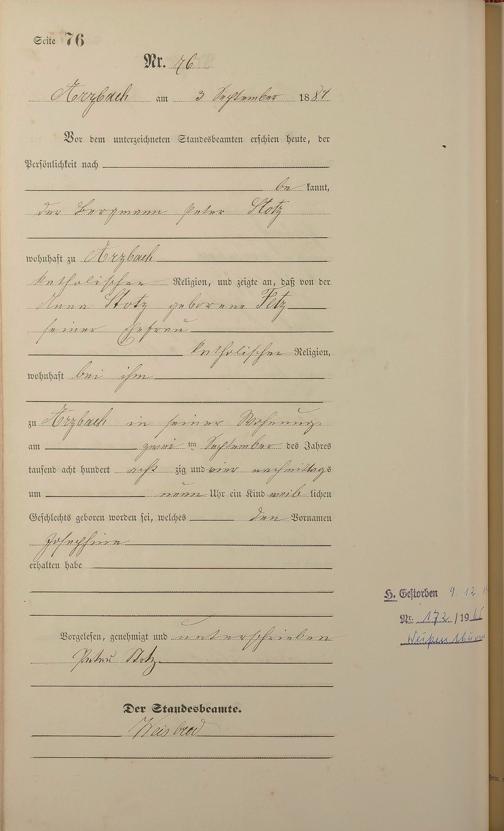 Seite 76
Nr. 76
Arzbach am 3 September 1884
Vor dem unterzeichneten Standesbeamten erschien heute, der
Persönlichkeit nach
be kannt,
der Bergmann Peter Stotz
wohnhaft zu Arzbach
katholischer Religion, und zeigte an, daß von der
Anna Stotz geborene Fetz
seiner Ehefrau
katholischer Religion,
wohnhaft bei ihm
zu Arzbach in seiner Wohnung
am zwei ten September des Jahres
tausend acht hundert acht zig und vier nachmittags
um neun Uhr ein Kind weib lichen
Geschlechts geboren worden sei, welches den Vornamen
Josephine
erhalten habe
Vorgelesen, genehmigt und unterschrieben
Peter Stotz
Der Standesbeamte.
Weisbrod
H. Gestorben 9. 12.
Nr. 172 / 19